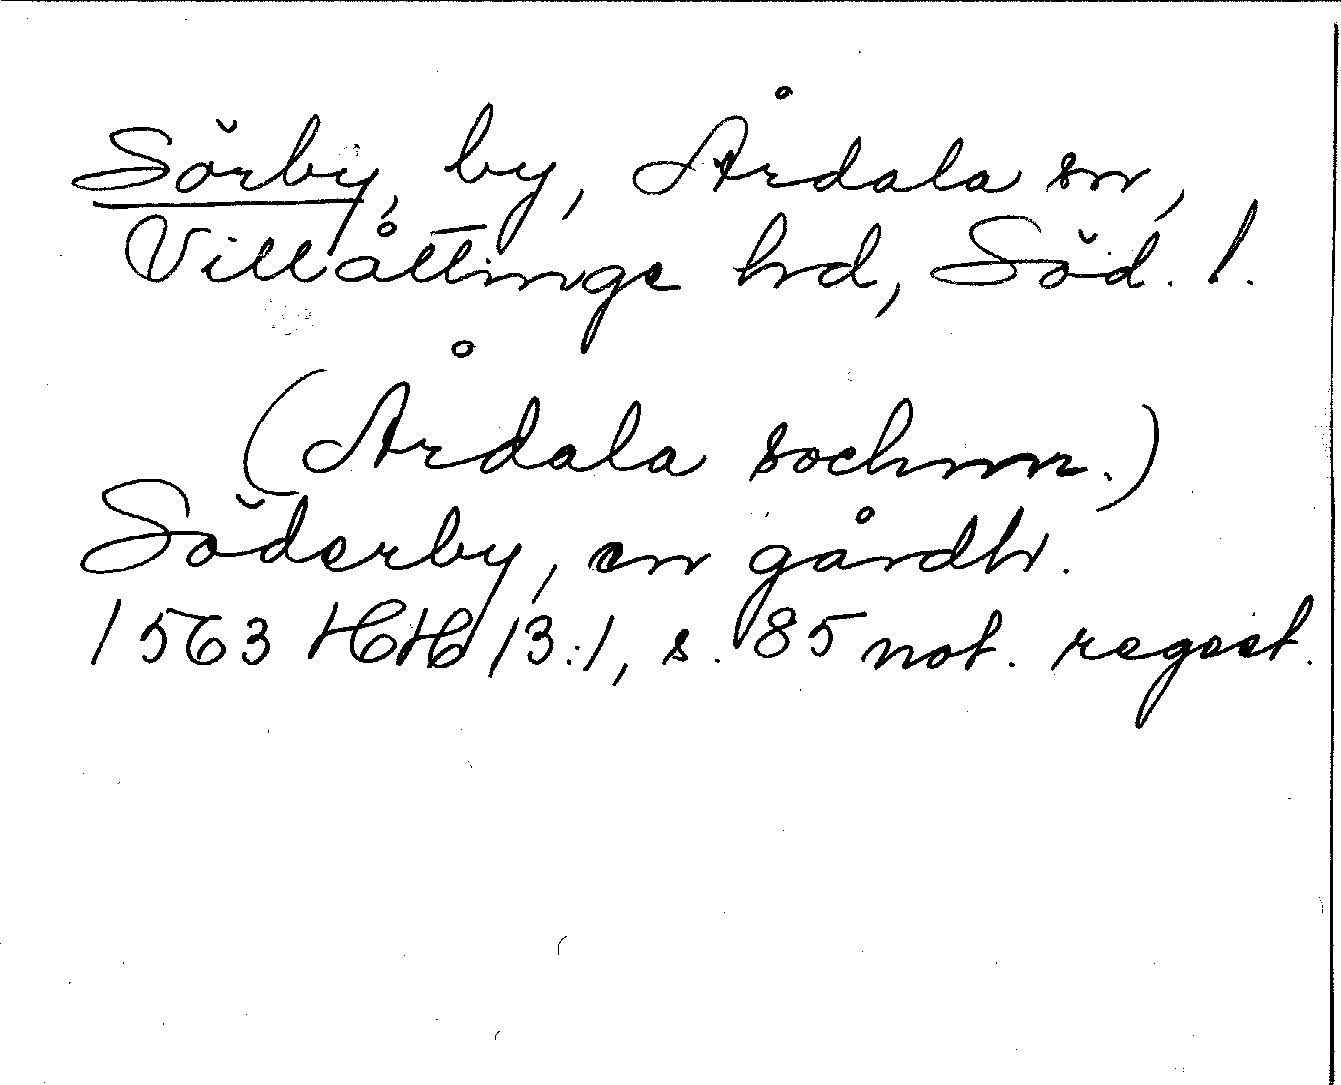 Sörby, by, Årdala sn,
Villåttinge hd, Söd. l.
(Årdala sochnn.)
Söderby, en gårdh.
1563 HH 13:1, s. 85 not. regest.